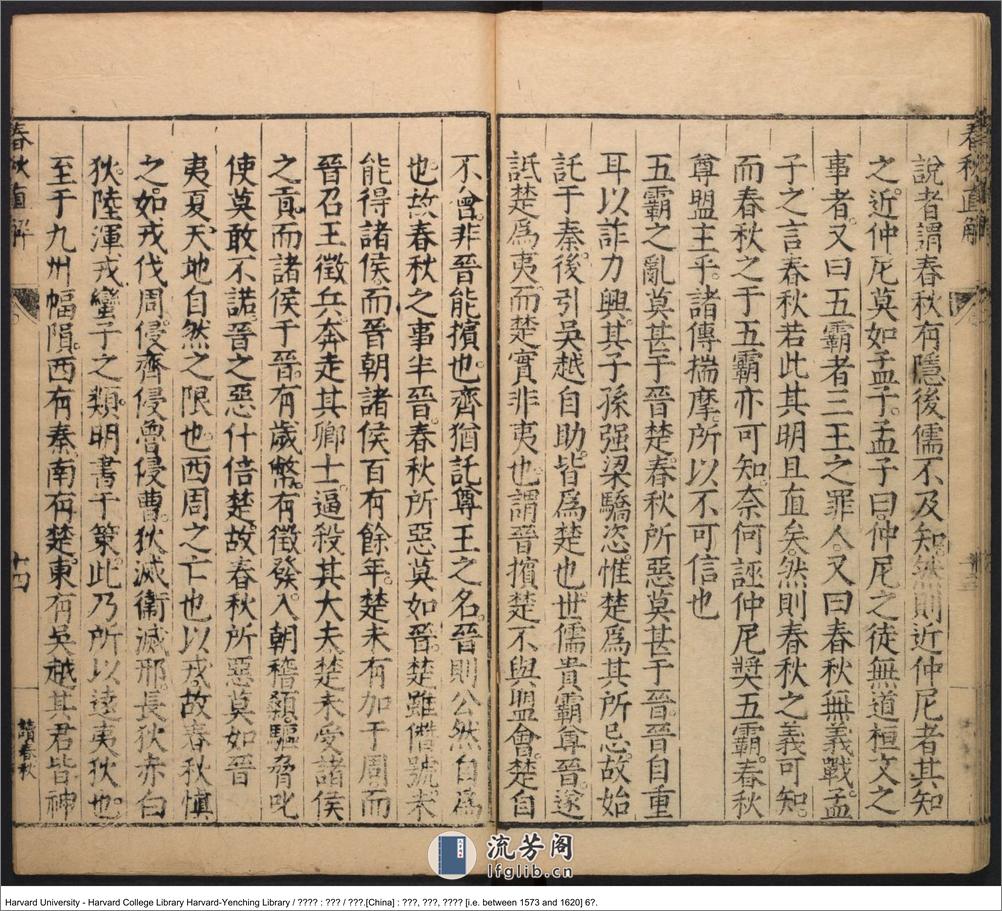 春秋直解
說者謂春秋有隱後儒不及知然則近仲尼者其知
之近仲尼莫如孟子孟子曰仲尼之徒無道桓文之
事者又曰五霸者三王之罪人又曰春秋無義戰孟
子之言春秋若此其明且直矣然則春秋之義可知
而春秋之于五霸亦可知奈何誣仲尼獎五霸春秋
尊盟主乎諸傳揣摩所以不可信也
五霸之亂莫甚于晉楚春秋所惡莫甚于晉晉自重
耳以詐力興其子孫强梁驕恣惟楚爲其所忌故始
託于秦後引吳越自助皆爲楚也世儒貴霸尊晉遂
詆楚爲夷而楚實非夷也謂晉擯楚不與盟會楚自
不會非晉能擯也齊猶託尊王之名晉則公然自爲
也故春秋之事半晉春秋所惡莫如晉楚雖僭號未
能得諸侯而晉朝諸侯百有餘年楚未有加于周而
晉召王徵兵奔走其卿士逼殺其大夫楚未受諸侯
之貢而諸侯于晉有歲幣有徵發入朝稽顙驅脅叱
使莫敢不諾晉之惡什倍楚故春秋所惡莫如晉
夷夏天地自然之限也西周之亡也以戎故春秋慎
之如戎伐周侵齊侵魯侵曹狄滅衞滅邢長狄赤白
狄陸渾戎蠻子之類明書于策此乃所以遠夷狄也
至于九州幅隕西有秦南有楚東有吳越其君皆神
春秋直解
十四
讀春秋
流芳阁
lfglib.cn
Harvard University - Harvard College Library Harvard-Yenching Library / ???? : ??? / ???.[China] : ???, ???, ???? [i.e. between 1573 and 1620] 6?.